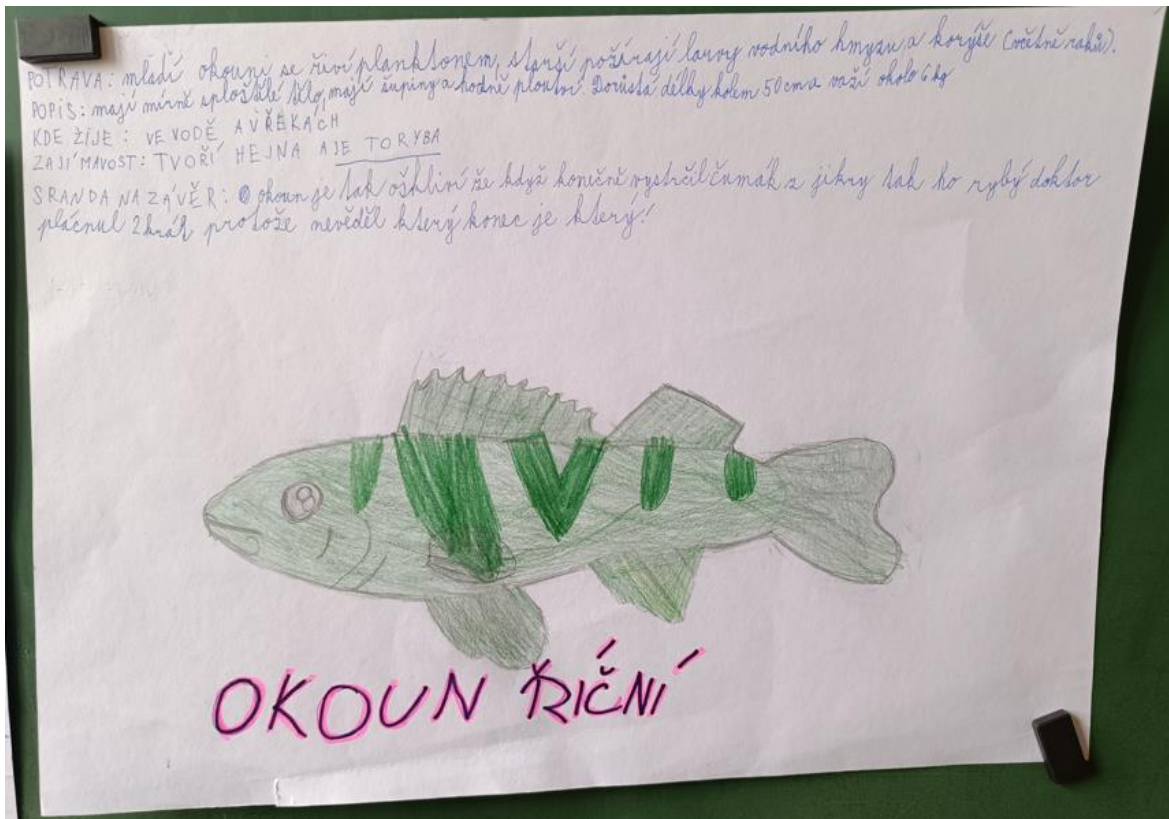 POTRAVA: mladí okouni se živí planktonem, starší požírají larvy vodního hmyzu a korýše (včetně raků).
POPIS: mají mírně sploštělé tělo, mají šupiny a hodně ploutví. Dorůstá délky kolem 50 cm a váží okolo 6 kg
KDE ŽIJE: VE VODĚ A V ŘEKÁCH
ZAJÍMAVOST: TVOŘÍ HEJNA A JE TO RYBA
SRANDA NA ZÁVĚR: okoun je tak oškliví že když konečně vystrčil čumák z jikry tak ho rybý doktor
plácnul 2 krát protože nevěděl který konec je který!
OKOUN ŘÍČNÍ